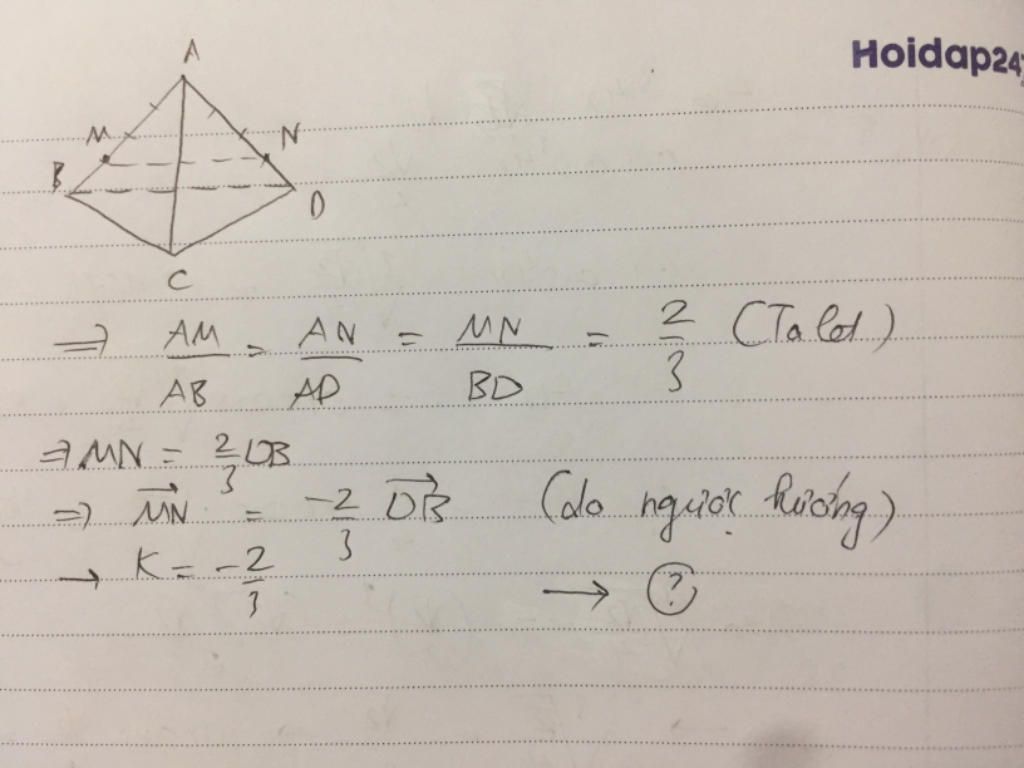 Hoidap247
A
M
N
B
D
C
=> AM/AB = AN/AD = MN/BD = 2/3 (Ta let)
=> MN = 2/3 DB
=> \overrightarrow{MN} = -2/3 \overrightarrow{DB} (do ngược hướng)
→ K = -2/3 → ?